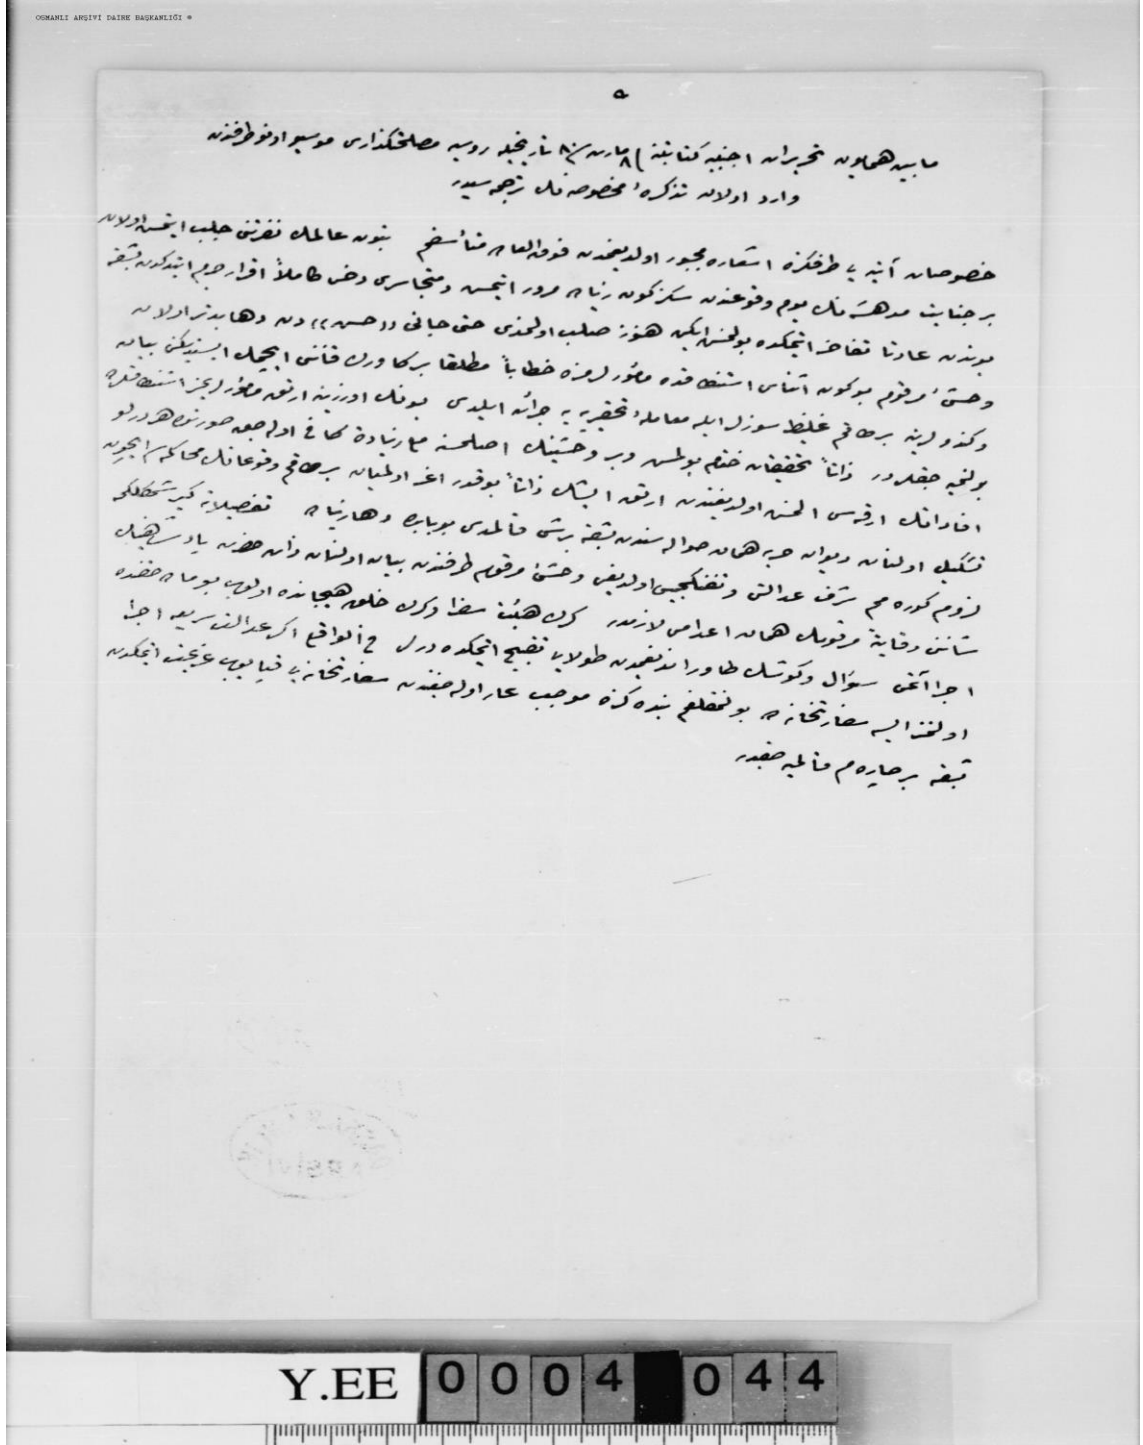 OSMANLI ARŞİVİ DAİRE BAŞKANLIĞI ®
مابين همايون تحريرات اجنبيه كتابتنه مارت تاريخيله روسيه مصلحتكذارى موسيو اونو طرفندن
وارد اولان تذكرۀ مخصوصه نك ترجمه سيدر
خصوصات آتيه يى طرفكزه اشعاره مجبور اولديغمدن فوق العاده متأسفم بتون عالمك نفرتنى جلب ايتمش اولان
بر جنايت مدهشه نك يوم وقوعندن سكز كون زياده مرور ايتمش و متجاسرى دخى كاملاً اقرار جرم ايتدكدن بشقه
بوندن عادتا تفاخر ايتمكده بولنمش ايكن هنوز صلب اولنمدى حتى جانى «حسن» دن دها بدتر اولان
وحشئ مرقوم بوكون اثناى استنطاقده مأمورلرمزه خطاباً مطلقا بر كاورك قاننى ايچمك ايستديكنى بيان
وكندولرينه برطاقم غليظ سوزلر ايله معاملۀ تحقيريه يه جرأت ايلدى بونك اوزرينه ارتق مأمورلريمز استنطاقلرده
بولنميه جقلردر ذاتاً تحقيقات ختام بولمش وبر وحشينك اصلمسنه مع زيادة كافى اوله جق صورتده هر درلو
افاداتك ارقه سى النمش اولديغندن ارتق ايشك ذاتاً بوقدر اغر اولميان برطاقم وقوعاتك محاكمه سى ايچون
تشكيل اولنان ديوان حربه همان حواله سندن بشقه برشى قالمدى بوبابده دها زياده تفصيلاته كيريشمكلكم
لزوم كوره مم شرف عدالتى وتفنكجيسى اولديغى وحشئ مرقوم طرفندن بيان اولنان ذات حضرت پادشاهينك
شاننى وقاية مرقومك همان اعدامى لازمدر كرك هيئت سفرا وكرك خلق هيجانده اولوب بو ماده حقنده
اجراآتى سؤال وكوشك طاوراندیغمدن طولايى تقبيح ايتمكده درلر فى الواقع اكر عدالت سريعه اجرا
اولنمز ايسه سفارتخانه ده بولنمقلغم بنده كزه موجب عار اوله جغندن سفارتخانه يى قپايوب عزيمت ايتمكدن
بشقه بر چاره م قالميه جقدر
Y.EE 0004 044